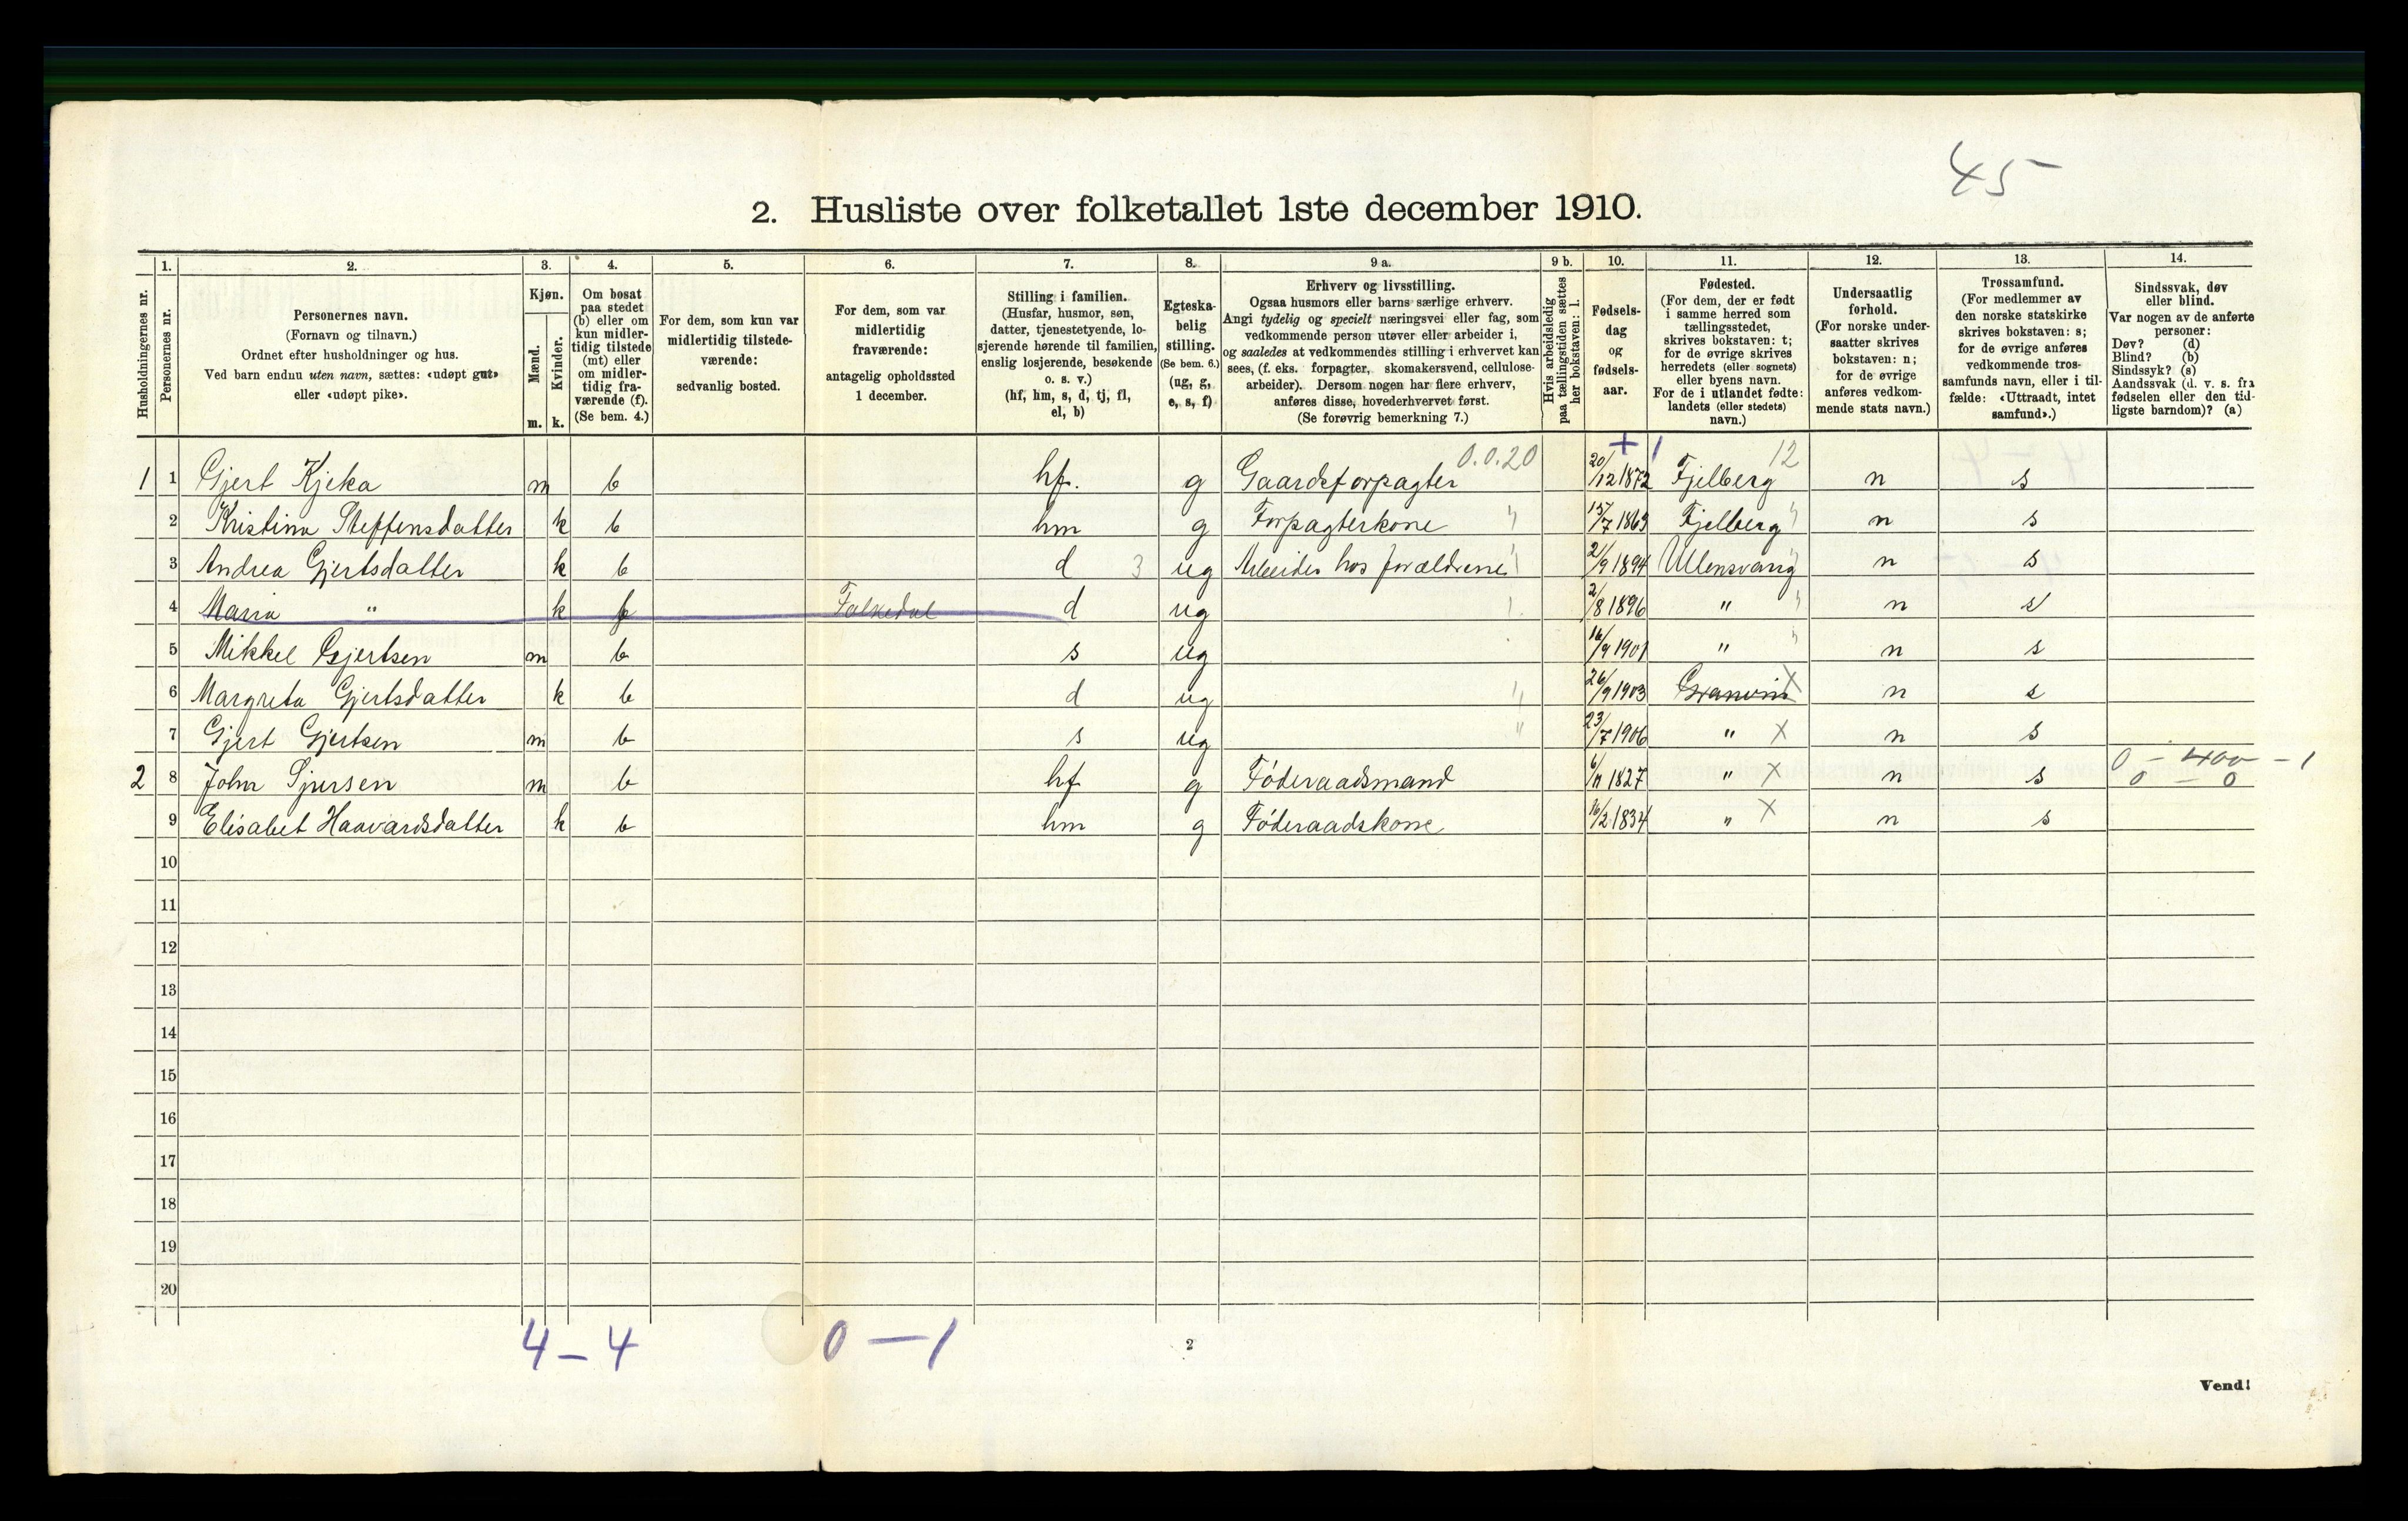 45
2. Husliste over folketallet 1ste december 1910.
Husholdningernes nr.
1. Personernes nr.
2. Personernes navn. (Fornavn og tilnavn.) Ordnet efter husholdninger og hus. Ved barn endnu uten navn, sættes: «udøpt gut» eller «udøpt pike».
3. Kjøn. Mænd. m. Kvinder. k.
4. Om bosat paa stedet (b) eller om kun midlertidig tilstede (mt) eller om midlertidig fraværende (f). (Se bem. 4.)
5. For dem, som kun var midlertidig tilstedeværende: sedvanlig bosted.
6. For dem, som var midlertidig fraværende: antagelig opholdssted 1 december.
7. Stilling i familien. (Husfar, husmor, søn, datter, tjenestetyende, losjerende hørende til familien, enslig losjerende, besøkende o. s. v.) (hf, hm, s, d, tj, fl, el, b)
8. Egteskabelig stilling. (Se bem. 6.) (ug, g, e, s, f)
9 a. Erhverv og livsstilling. Ogsaa husmors eller barns særlige erhverv. Angi tydelig og specielt næringsvei eller fag, som vedkommende person utøver eller arbeider i, og saaledes at vedkommendes stilling i erhvervet kan sees, (f. eks. forpagter, skomakersvend, cellulosearbeider). Dersom nogen har flere erhverv, anføres disse, hovederhvervet først. (Se forøvrig bemerkning 7.)
9 b. Hvis arbeidsledig paa tællingstiden sættes her bokstaven: l.
10. Fødselsdag og fødselsaar.
11. Fødested. (For dem, der er født i samme herred som tællingsstedet, skrives bokstaven: t; for de øvrige skrives herredets (eller sognets) eller byens navn. For de i utlandet fødte: landets (eller stedets) navn.)
12. Undersaatlig forhold. (For norske undersaatter skrives bokstaven: n; for de øvrige anføres vedkommende stats navn.)
13. Trossamfund. (For medlemmer av den norske statskirke skrives bokstaven: s; for de øvrige anføres vedkommende trossamfunds navn, eller i tilfælde: «Uttraadt, intet samfund».)
14. Sindssvak, døv eller blind. Var nogen av de anførte personer: Døv? (d) Blind? (b) Sindssyk? (s) Aandssvak (d. v. s. fra fødselen eller den tidligste barndom)? (a)
0.0.20 + 1 12
1 1 Gjert Kjeka m b hf. g Gaardsforpagter 20/12 1872 Fjelberg n s
2 Kristina Steffensdatter k b hm g Forpagterkone " 15/7 1863 Fjelberg " n s
3 Andrea Gjertsdatter k b d 3 ug Arbeider hos forældrene 2/9 1894 Ullensvang n s
4 Maria " k f Folkedal d ug 2/8 1896 " n s
5 Mikkel Gjertsen m b s ug 16/9 1901 " n s
6 Margreta Gjertsdatter k b d ug " 26/9 1903 Granvin X n s
7 Gjert Gjertsen m b s ug " 23/7 1906 " X n s
2 8 John Sjursen m b hf g Føderaadsmand 6/11 1827 " X n s 0 – 400 – 1
0 – 0
9 Elisabet Haavardsdatter k b hm g Føderaadskone 16/2 1834 " X n s
10
11
12
13
14
15
16
17
18
19
20
4 – 4 0 – 1
2
Vend!